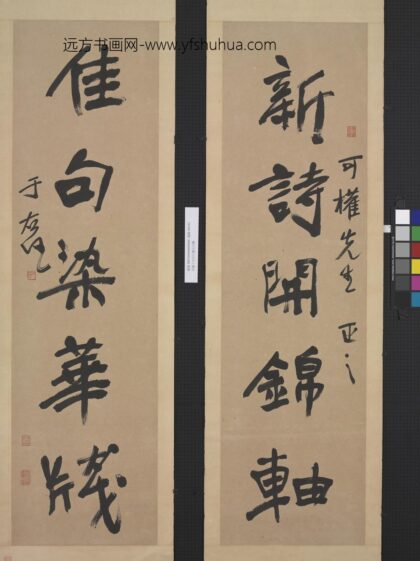 远方书画网-www.yfshuhua.com
新詩開錦軸
可權先生 正之
佳句染華牋
于右任